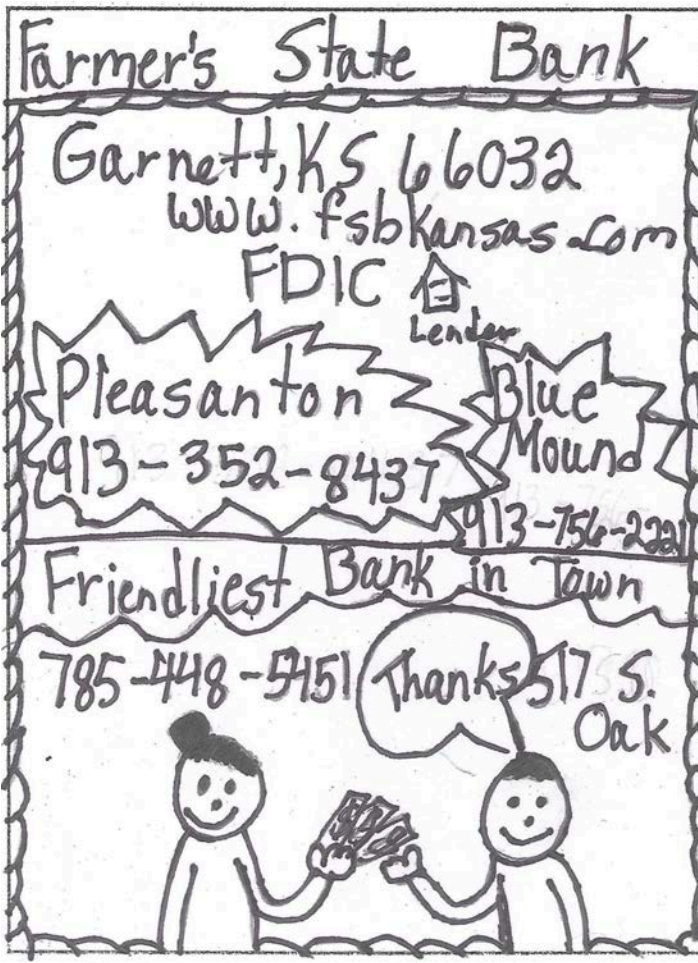 Farmer's State Bank
Garnett, KS 66032
www.fsbkansas.com
FDIC
Lender
Pleasanton
913-352-8437
Blue
Mound
913-756-2221
Friendliest Bank in Town
785-448-5451
Thanks
517 S.
Oak
$ $ $